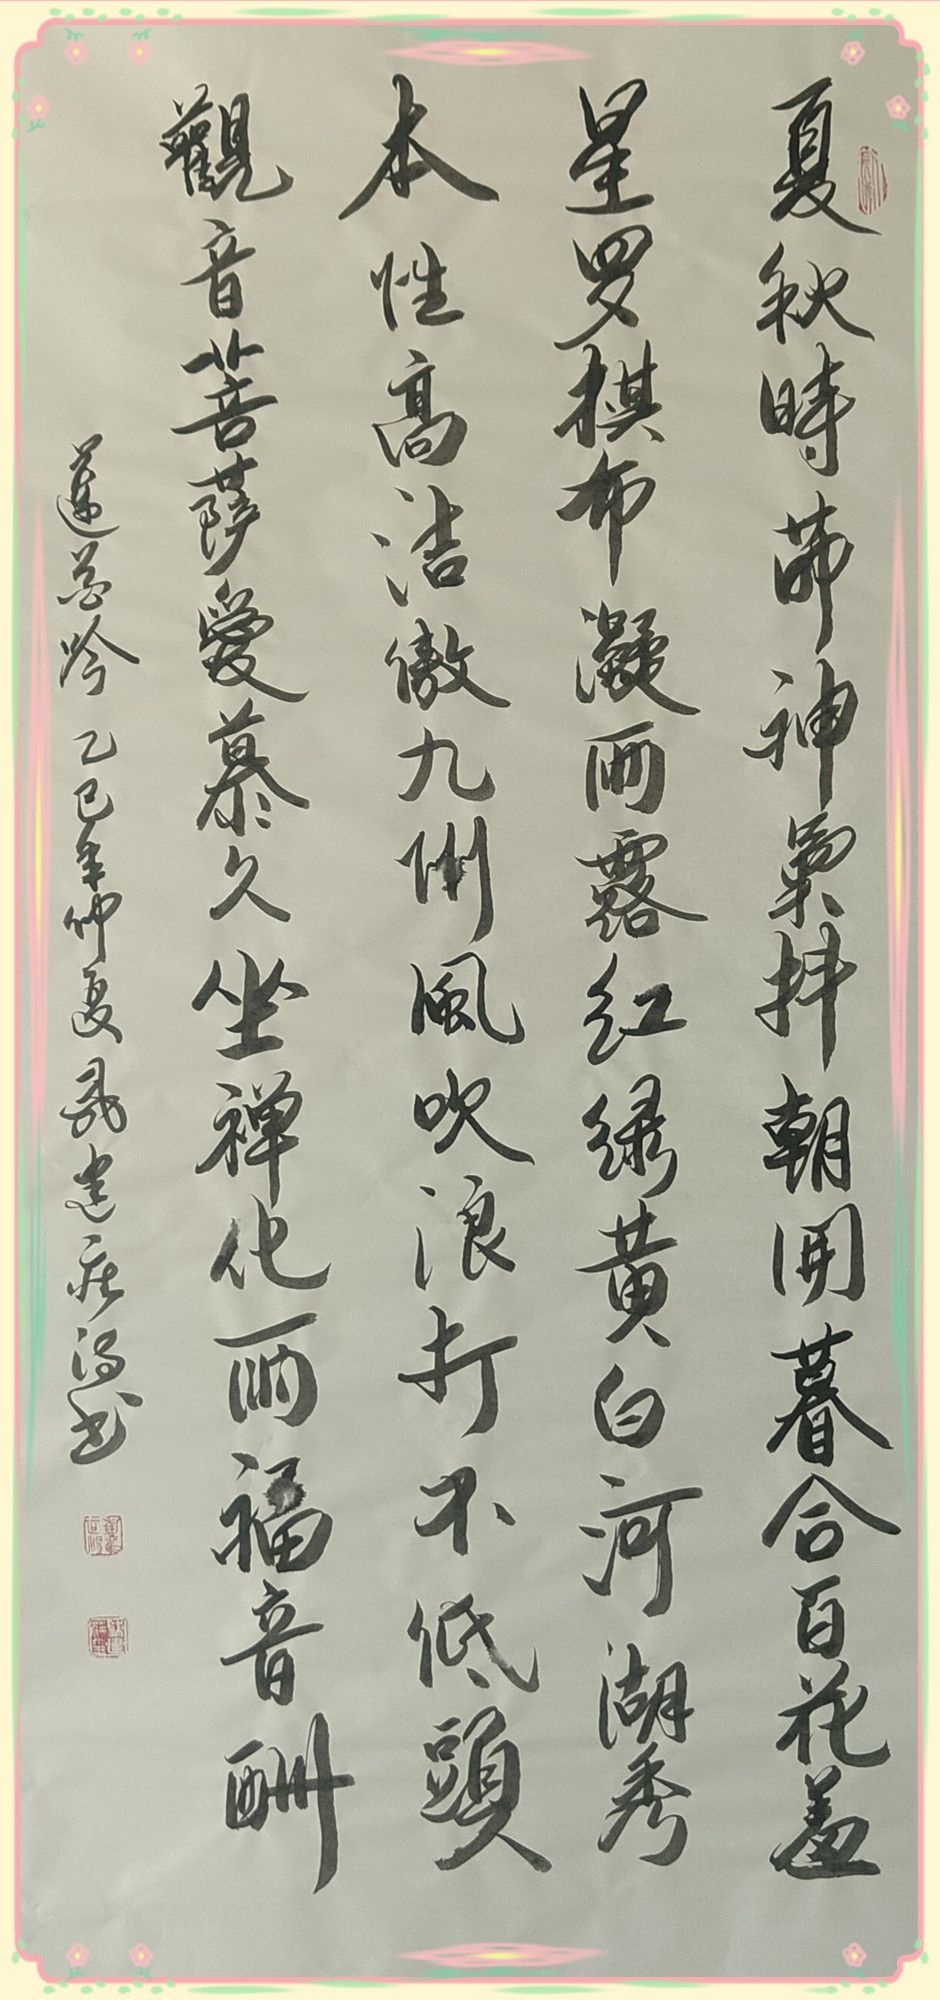 夏秋時茆神氣抖朝開暮合百花羞
星罗棋布凝雨露红绿黄白河湖秀
本性高洁傲九州風吹浪打不低頭
觀音菩萨愛慕久坐禅化雨福音酬
莲花吟 乙巳年仲夏 建 书